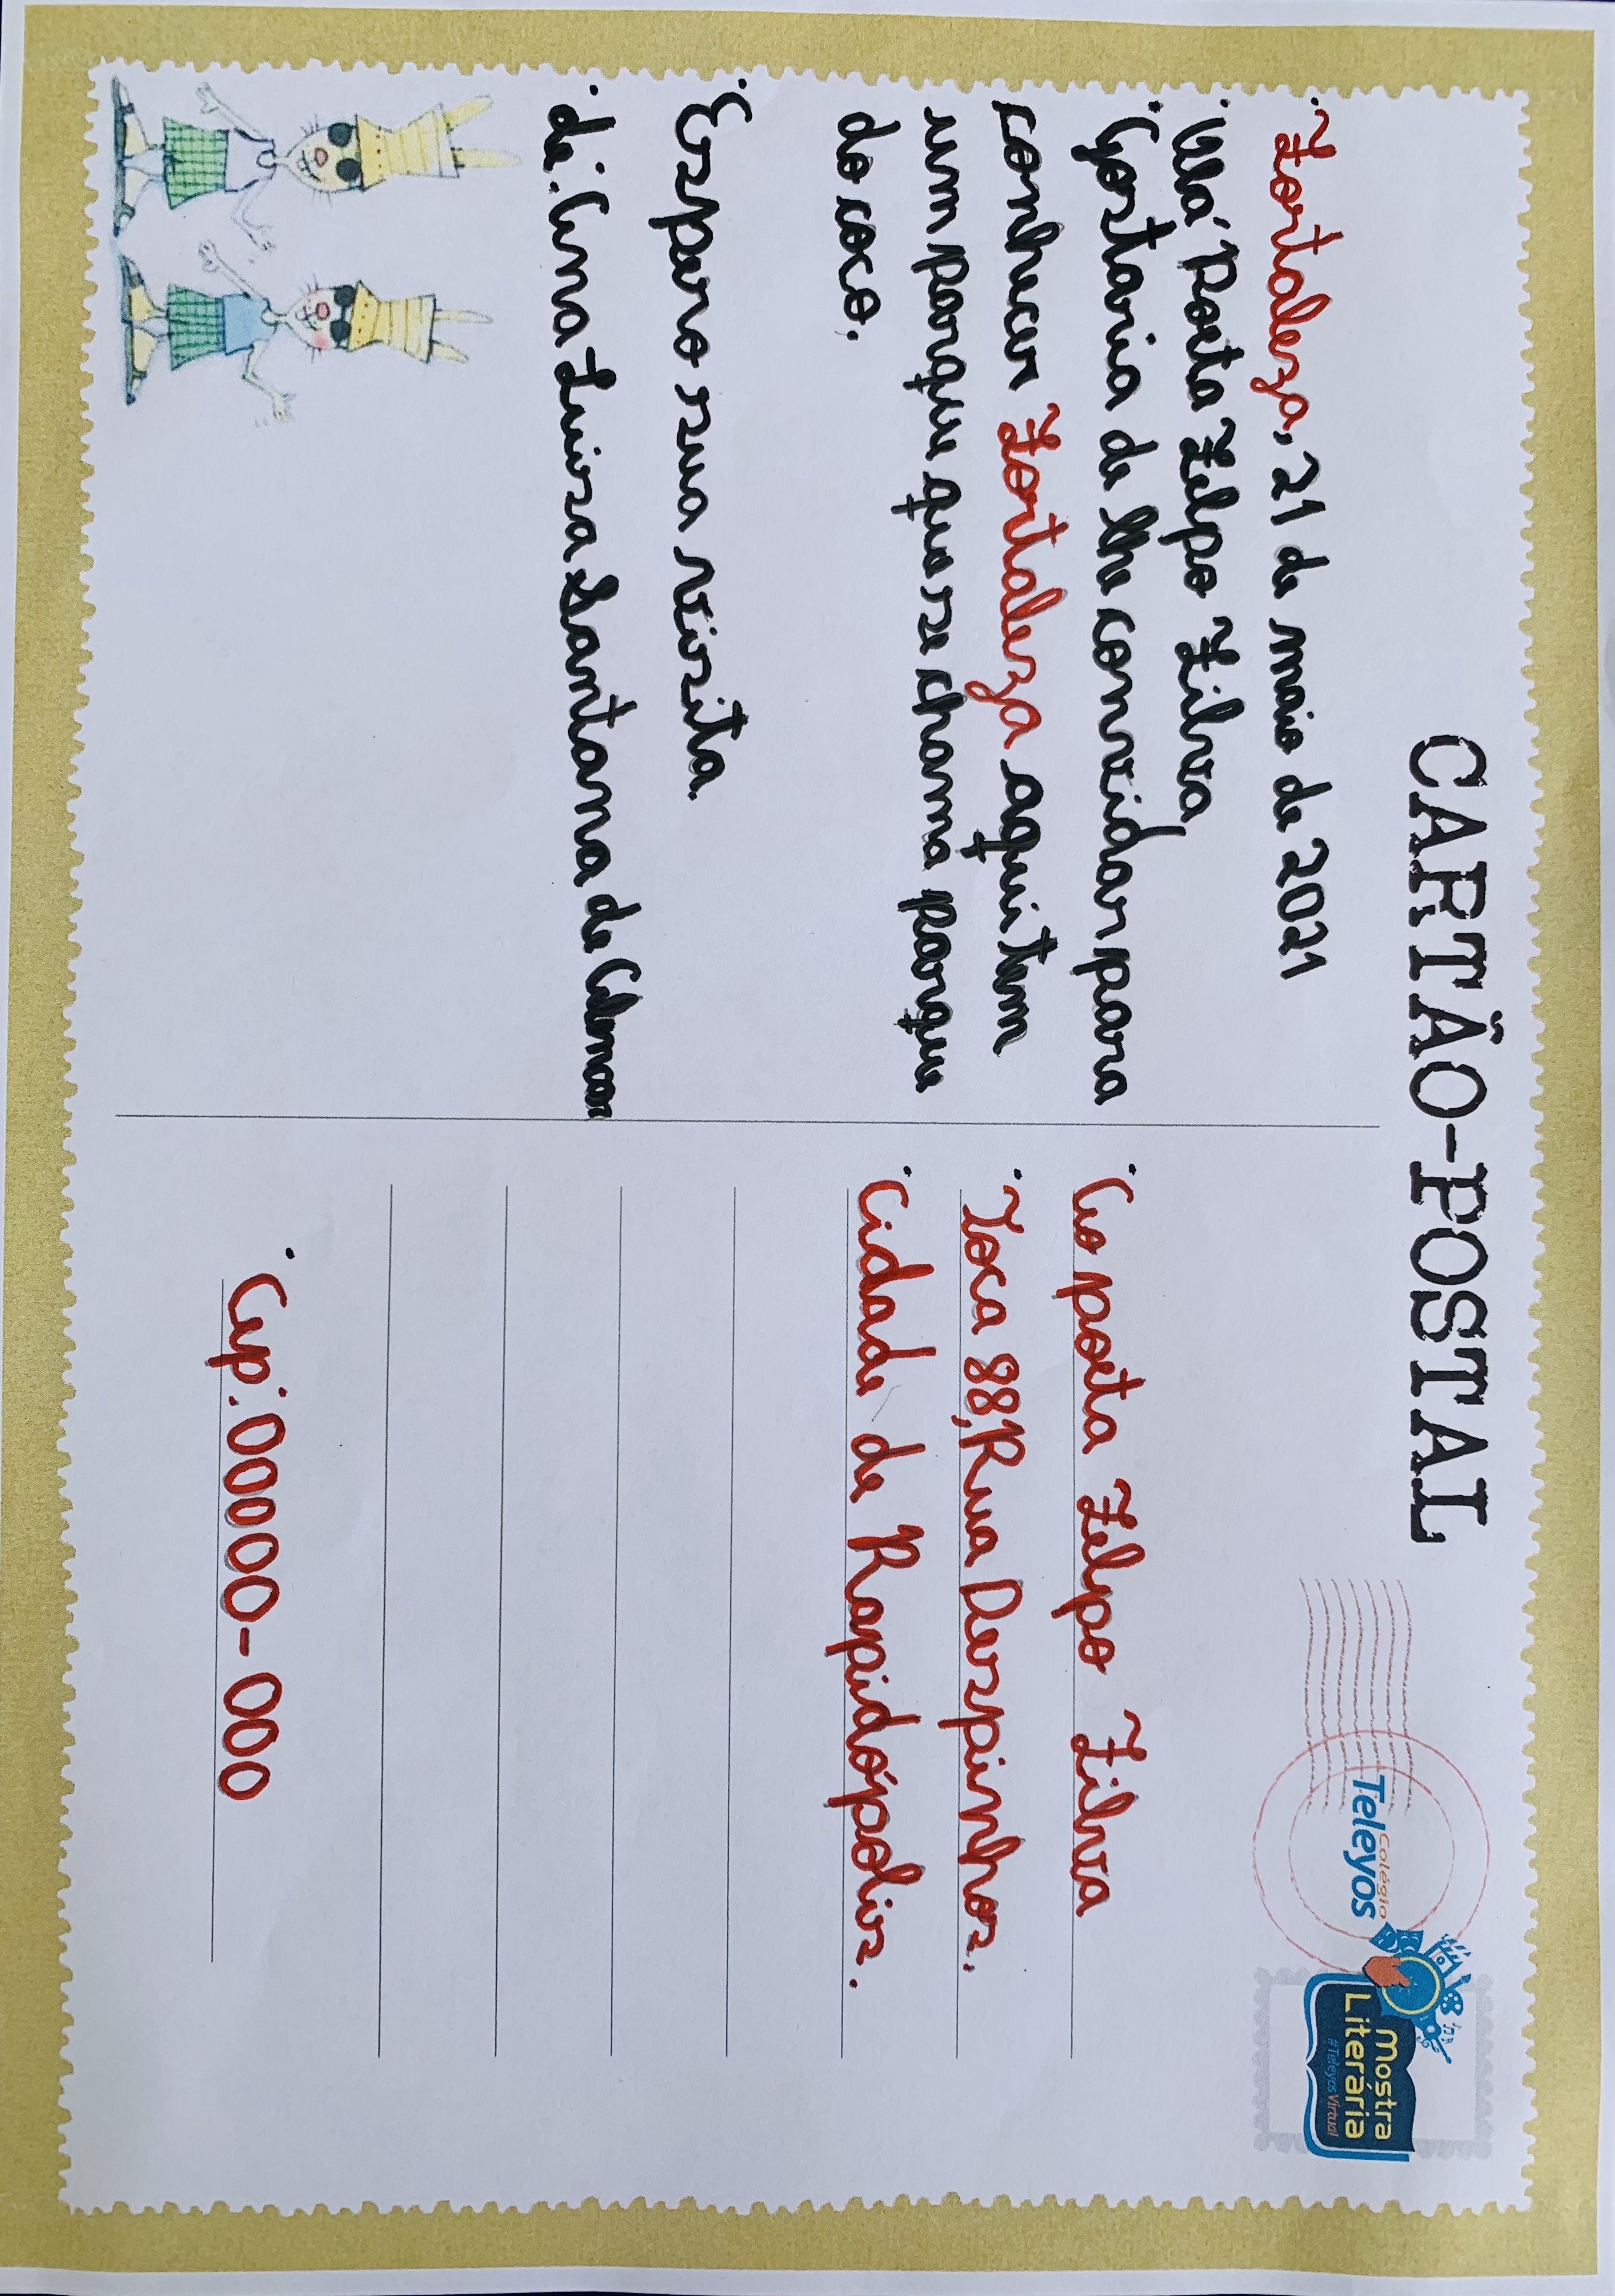 CARTÃO-POSTAL
Colégio
Teleyos
Mostra
Literária
#TeleyosVirtual
Fortaleza, 21 de maio de 2021
Olá poeta Felpo Filva
Gostaria de lhe convidar para
conhecer Fortaleza aqui tem
um parque que se chama parque
do coco.
Espero sua visita.
de: Ana Luisa Santana de Alencar
Ao poeta Felpo Filva
Toca 88, Rua Despinhos.
Cidade de Rapidópolis.
Cep: 00000-000